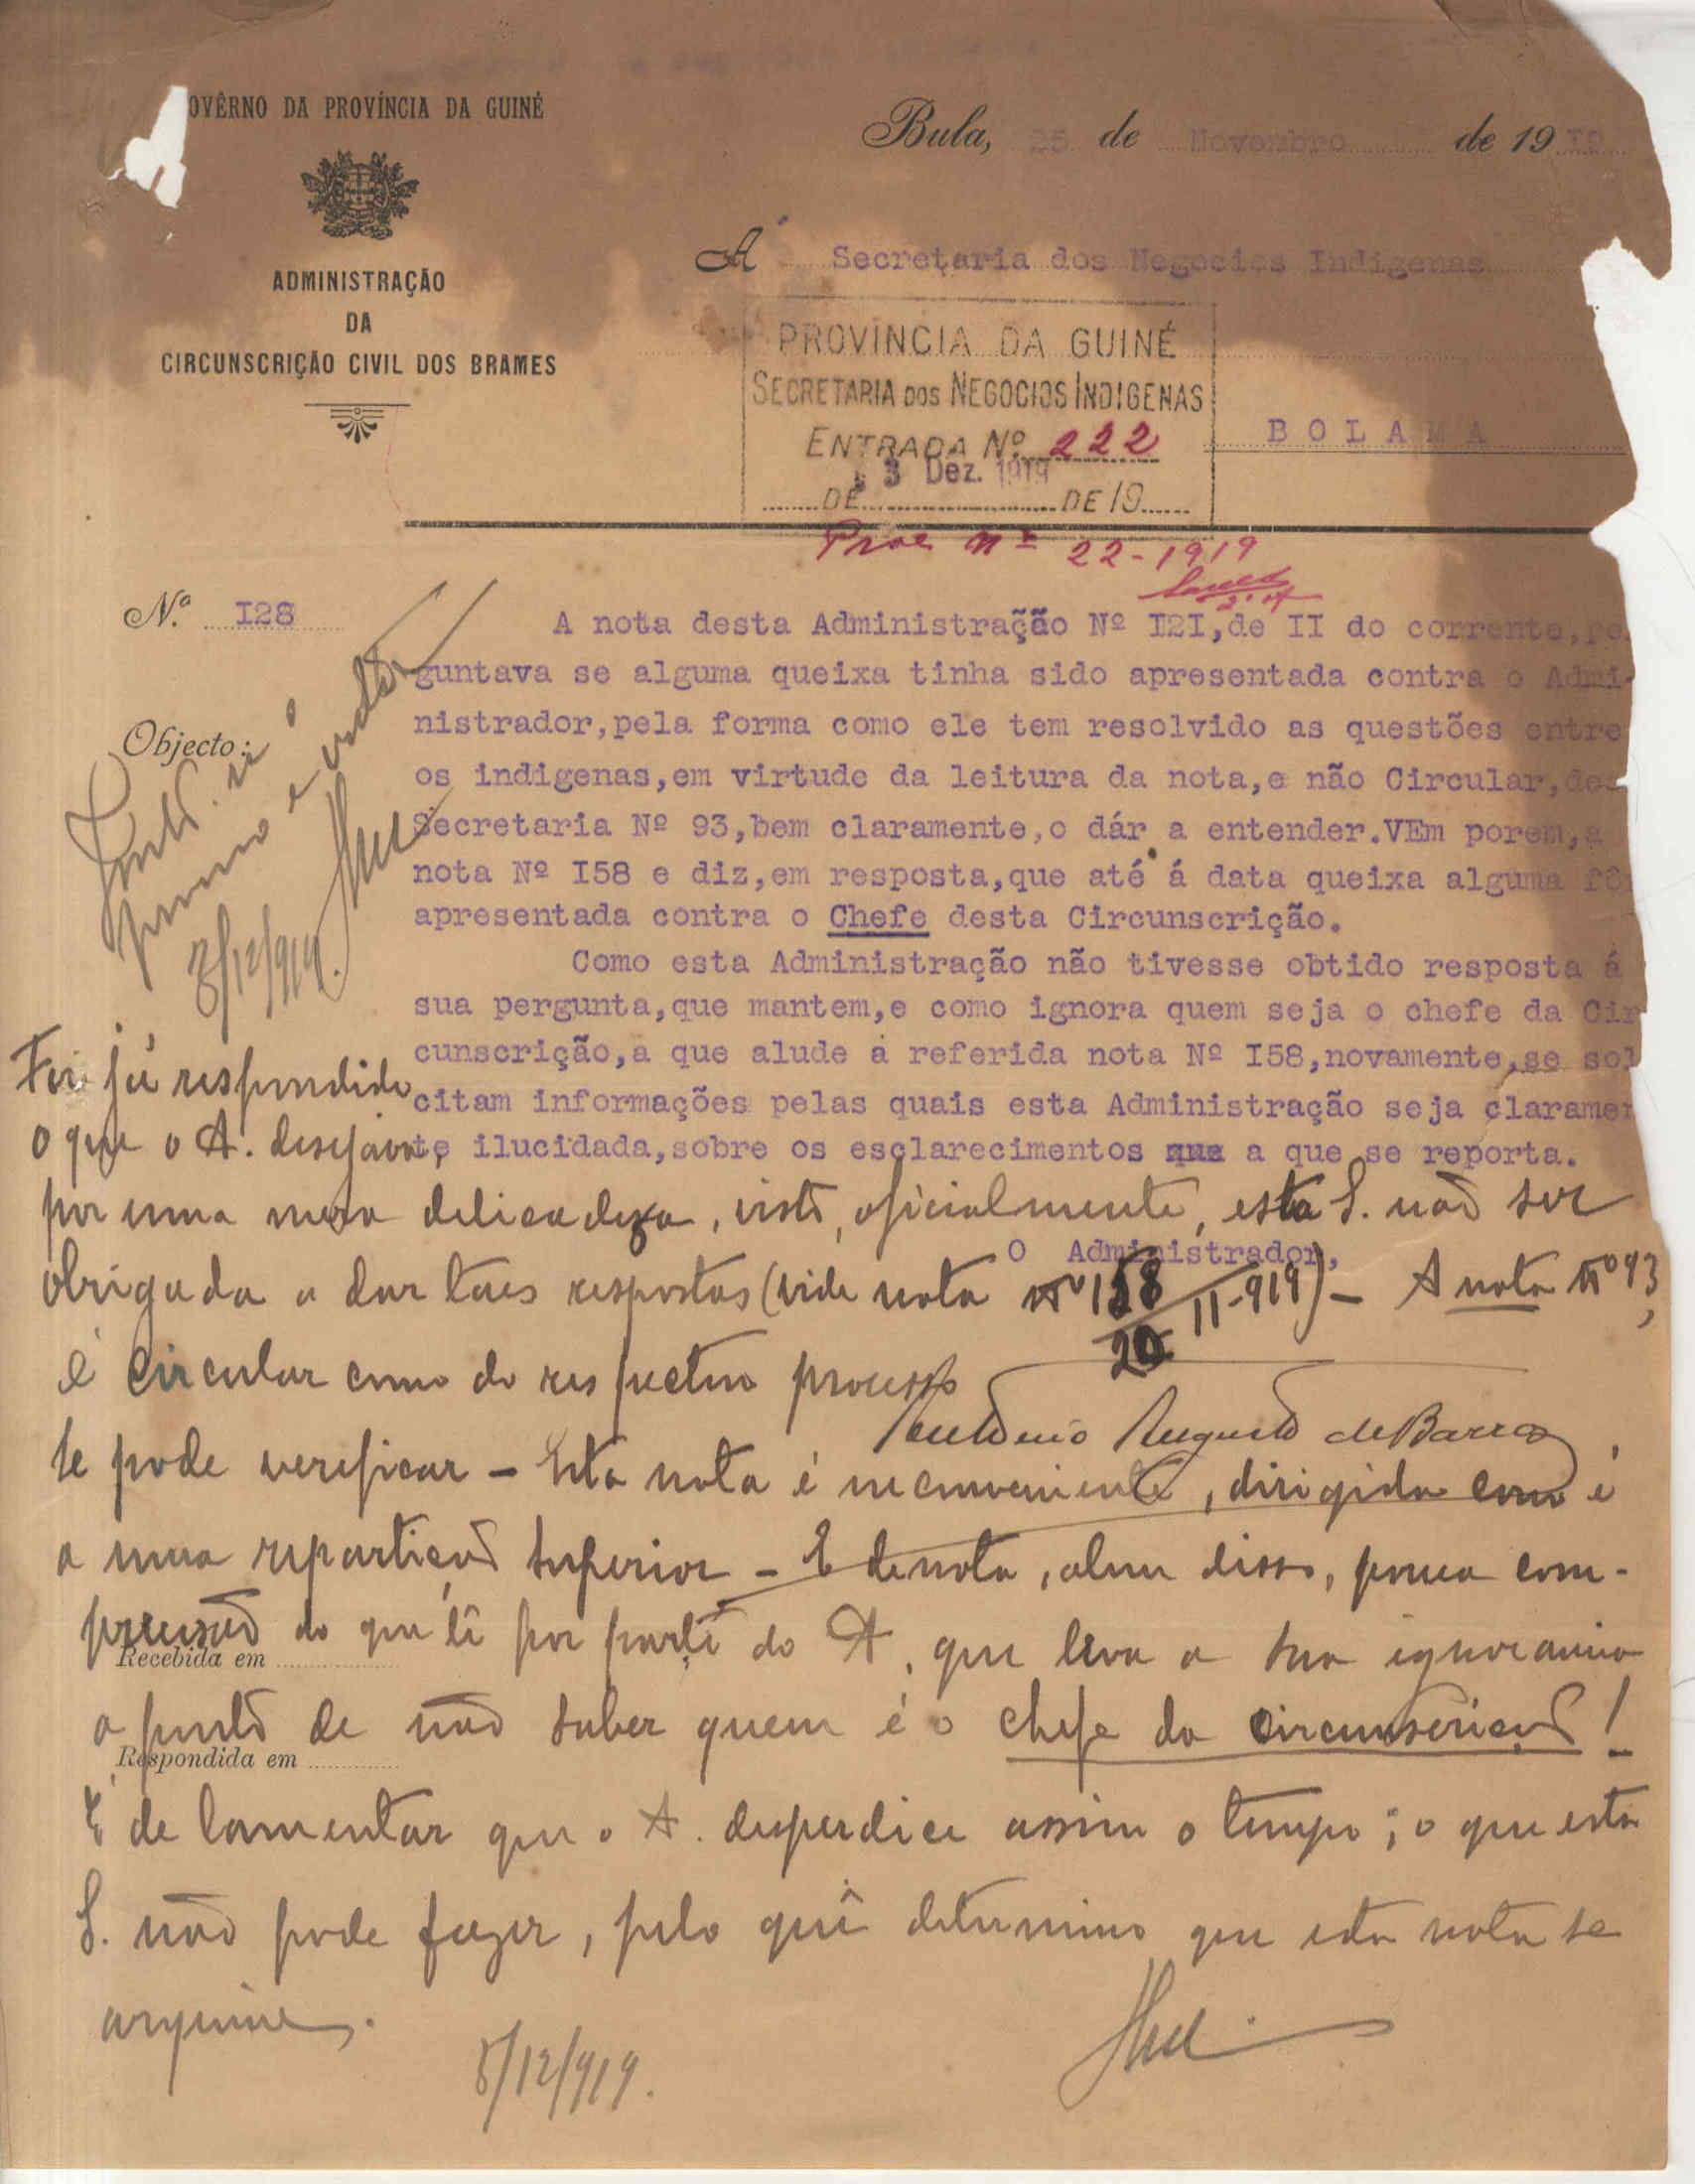 OVÊRNO DA PROVÍNCIA DA GUINÉ
ADMINISTRAÇÃO
DA
CIRCUNSCRIÇÃO CIVIL DOS BRAMES
Bula, 25 de Novembro de 1919
Á Secretaria dos Negocios Indigenas
BOLAMA
PROVINCIA DA GUINÉ
SECRETARIA DOS NEGOCIOS INDIGENAS
ENTRADA Nº 222
3 Dez. 1919
DE DE 19
Proc nº 22-1919
N.º I28
Objecto:
A nota desta Administração Nº I2I,de II do corrente,
guntava se alguma queixa tinha sido apresentada contra o Admi-
nistrador,pela forma como ele tem resolvido as questões entre
os indigenas,em virtude da leitura da nota,e não Circular,
Secretaria Nº 93,bem claramente,o dár a entender.VEm porem,a
nota Nº I58 e diz,em resposta,que até á data queixa alguma fô
apresentada contra o Chefe desta Circunscrição.
Como esta Administração não tivesse obtido resposta á
sua pergunta,que mantem,e como ignora quem seja o chefe da Cir
cunscrição,a que alude a referida nota Nº I58,novamente,se sol
citam informações pelas quais esta Administração seja claramen
te ilucidada,sobre os esclarecimentos que a que se reporta.
O Administrador,
Antonio Augusto de Barros
processo e volte
8/12/919.
Foi já respondido
o que o A. desejava,
por uma mera delicadeza, visto, oficialmente, esta S. não ser
obrigada a dar taes respostas (vide nota nº 158/20 11-919) – A nota nº 93,
é circular como do respectivo processo
se pode verificar – Esta nota é inconveniente, dirigida como é
a uma repartição superior – E denota, alem disso, pouca com-
preensão do que lê por parte do A, que leva a sua ignorancia
a ponto de não saber quem é o chefe da circunscrição!
É de lamentar que o A. desperdice assim o tempo; o que esta
S. não pode fazer, pelo quê determino que esta nota se
arquive.
8/12/919.
Recebida em
Respondida em